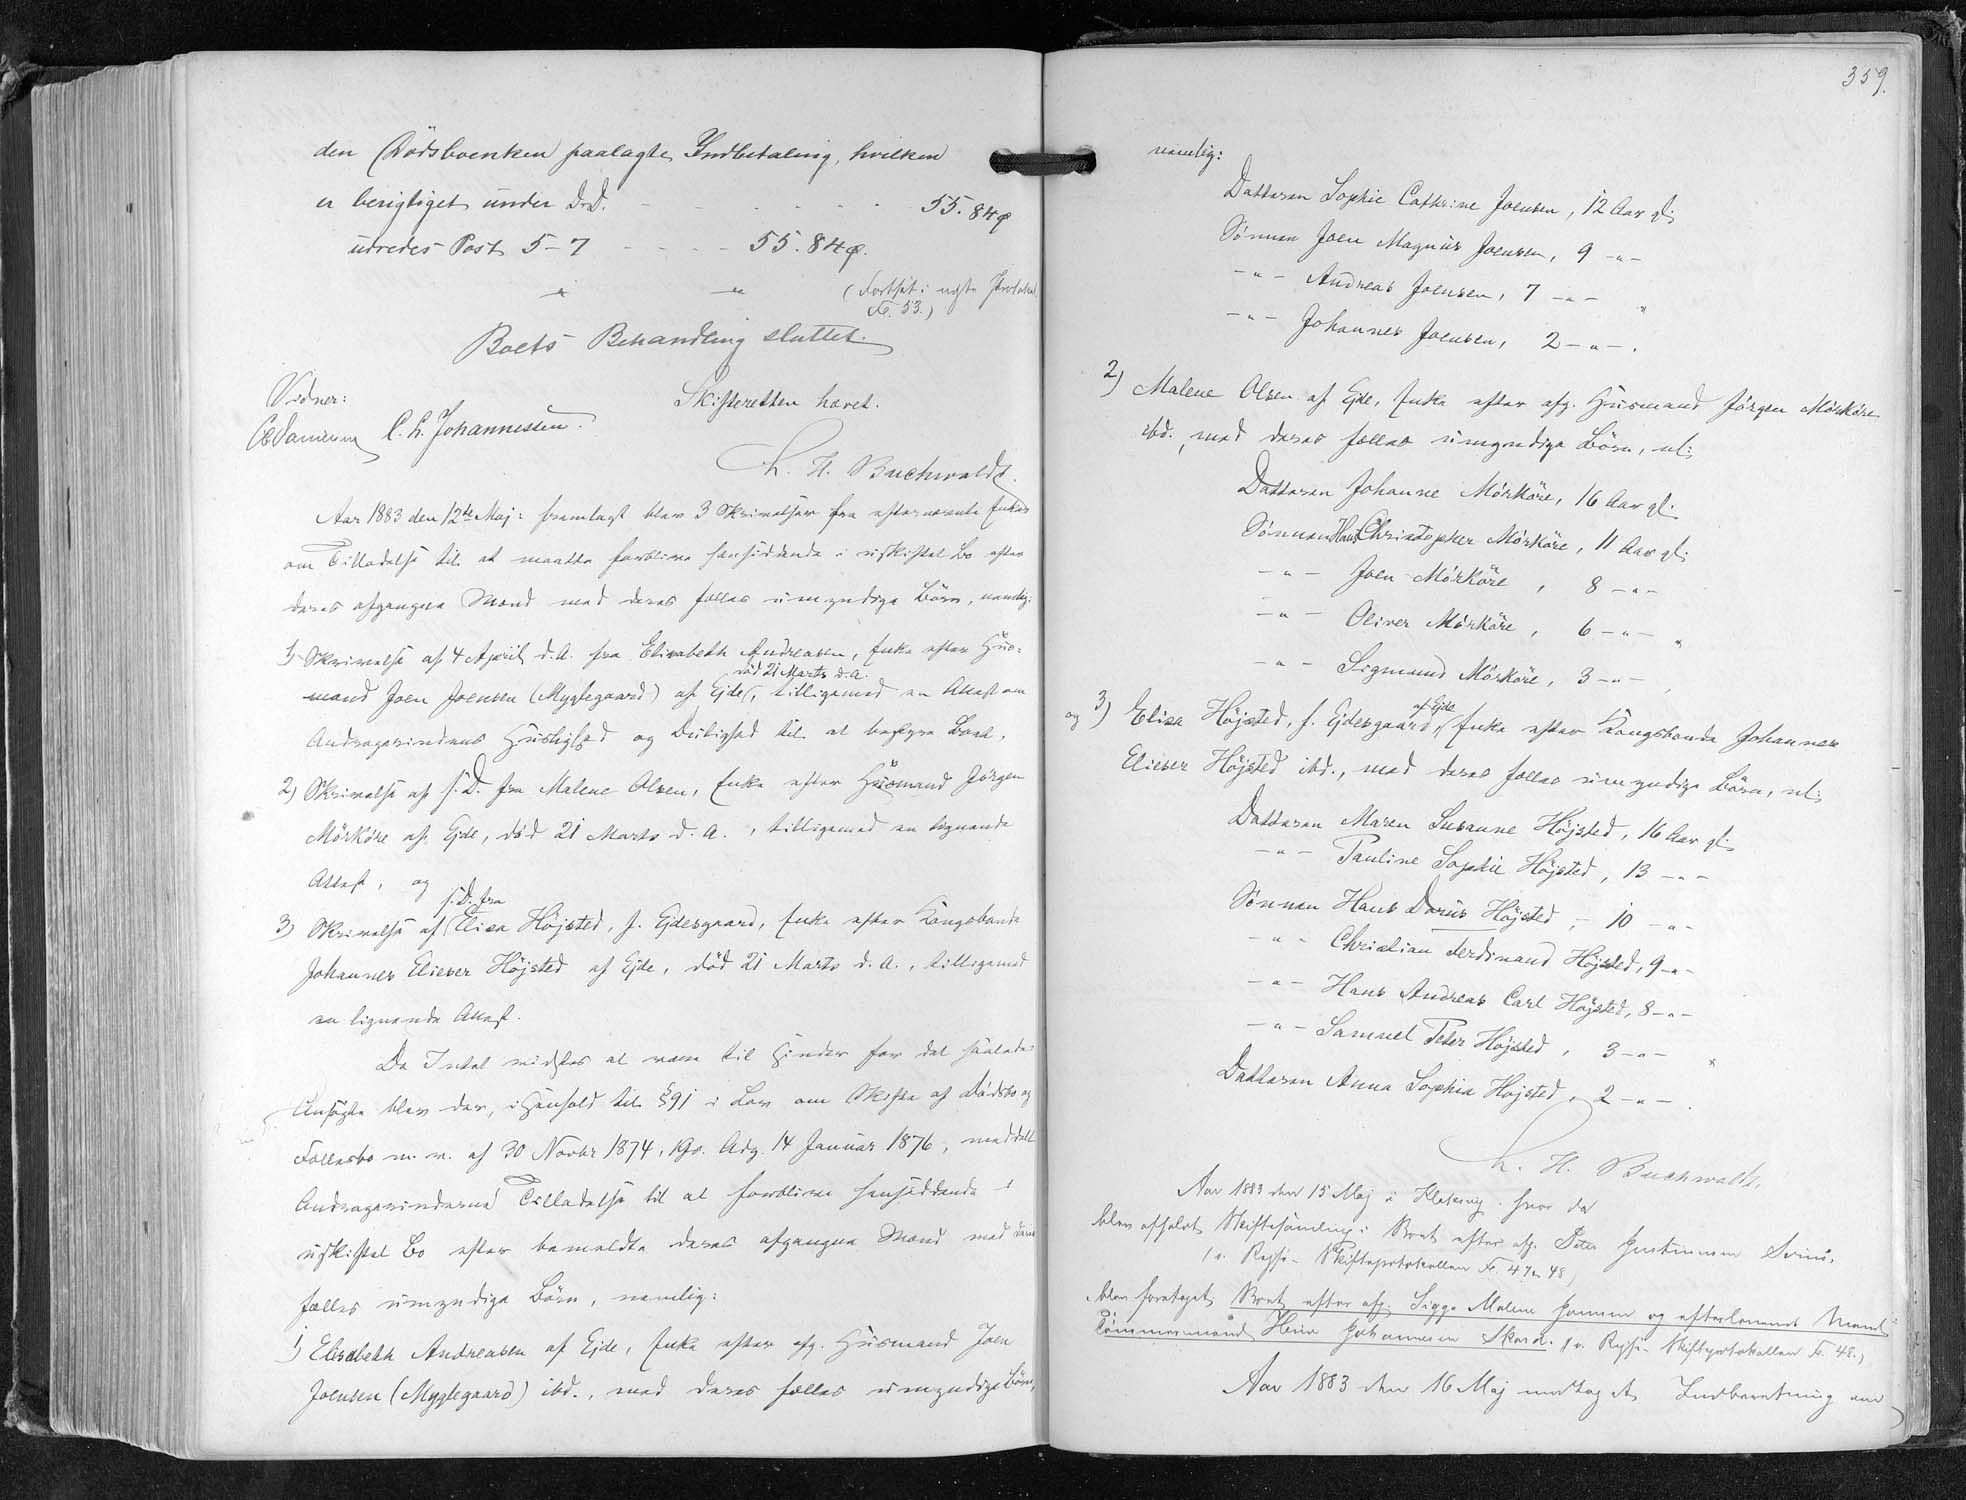 den Dödsboenken paalagte Indbetaling, hvilken
er berigtiget under D.D. - - - - - - 55.84 ø
udredes Post 5-7 - - - - 55.84 ø.
(Fortsat i nyste Protokol
Fo. 53.)
Boets Behandling sluttet.
Skifteretten hævet.
Vidner:
C. L. Johannessen.
L. H. Buchwaldt.
Aar 1883 den 12te Maj: fremlagt blev 3 Skrivelser fra efternævnte Enker
om Tilladelse til at maatte forblive hensiddende i uskiftet Bo efter
deres afgangne Mænd med deres fælles umyndige Börn, nemlig:
1) Skrivelse af 4 April d.A. fra Elisabeth Andreasen, Enke efter Huus-
död 21 Marts d.A.
mand Joen Joensen (Myglegaard) af Ejde, tilligemed en Attest om
Andragerindens Huslighed og Dulighed til at bestyre Boet,
2) Skrivelse af s.D. fra Malene Olsen, Enke efter Huusmand Jörgen
Mörköre af Ejde, död 21 Marts d.A., tilligemed en lignende
Attest, og
s.D. fra
3) Skrivelse af Elisa Höjsted, f. Ejdesgaard, Enke efter Kongsbonde
Johannes Elieser Höjsted af Ejde, död 21 Marts d.A., tilligemed
en lignende Attest.
Da Intet vidstes at være til Hinder for det saaledes
Ansögte blev der, i Henhold til §91 i Lov om Skifte af Dödsbo og
Fællesbo m.v. af 30 Novbr 1874, kfr. Adg. 14 Januar 1876, meddelt
Andragerinderne Tilladelse til at forblive hensiddende i
uskiftet Bo efter bemeldte deres afgangne Mænd med deres
fælles umyndige Börn, nemlig:
1) Elisabeth Andreasen af Ejde, Enke efter afg. Huusmand Joen
Joensen (Myglegaard) ibd., med deres fælles umyndige Börn,
359.
nemlig:
Datteren Sophie Cathrine Joensen, 12 Aar gl.
Sönnen Joen Magnus Joensen, 9 -"-
-"- Andreas Joensen, 7 -"- "
-"- Johannes Joensen, 2 -"- .
2) Malene Olsen af Ejde, Enke efter afg. Huusmand Jörgen Mörköre
ibd., med deres fælles umyndige Börn, nl:
Datteren Johanne Mörköre, 16 Aar gl.
Sönnen Hans Christopher Mörköre, 11 Aar gl.
-"- Joen Mörköre, 8 -"-
-"- Oliver Mörköre, 6 -"- "
-"- Sigmund Mörköre, 3 -"- ,
af Ejde
og 3) Elisa Höjsted, f. Ejdesgaard, Enke efter Kongsbonde Johannes
Elieser Höjsted ibd., med deres fælles umyndige Börn, nl:
Datteren Maren Susanne Höjsted, 16 Aar gl.
-"- Pauline Sophie Höjsted, 13 -"-
Sönnen Hans Darius Höjsted, 10 -"-
-"- Christian Ferdinand Höjsted, 9 -"-
-"- Hans Andreas Carl Höjsted, 8 -"-
-"- Samuel Peter Höjsted, 3 -"- "
Datteren Anna Sophia Höjsted, 2 -"- .
L. H. Buchwaldt.
Aar 1883 den 15 Maj i Klaksvig hvor da
blev afholdt Skiftesamling i Boet efter afg. Peter Joensen
(v. Rejse-Skifteprotokollen Fo. 47 & 48)
blev foretaget Boet efter afg. Sigga Malene og efterlevende Mand
Tömmermand Johannesen Skard. (v. Rejse-Skifteprotokollen Fo. 48.)
Aar 1883 den 16 Maj modtaget Indberetning om